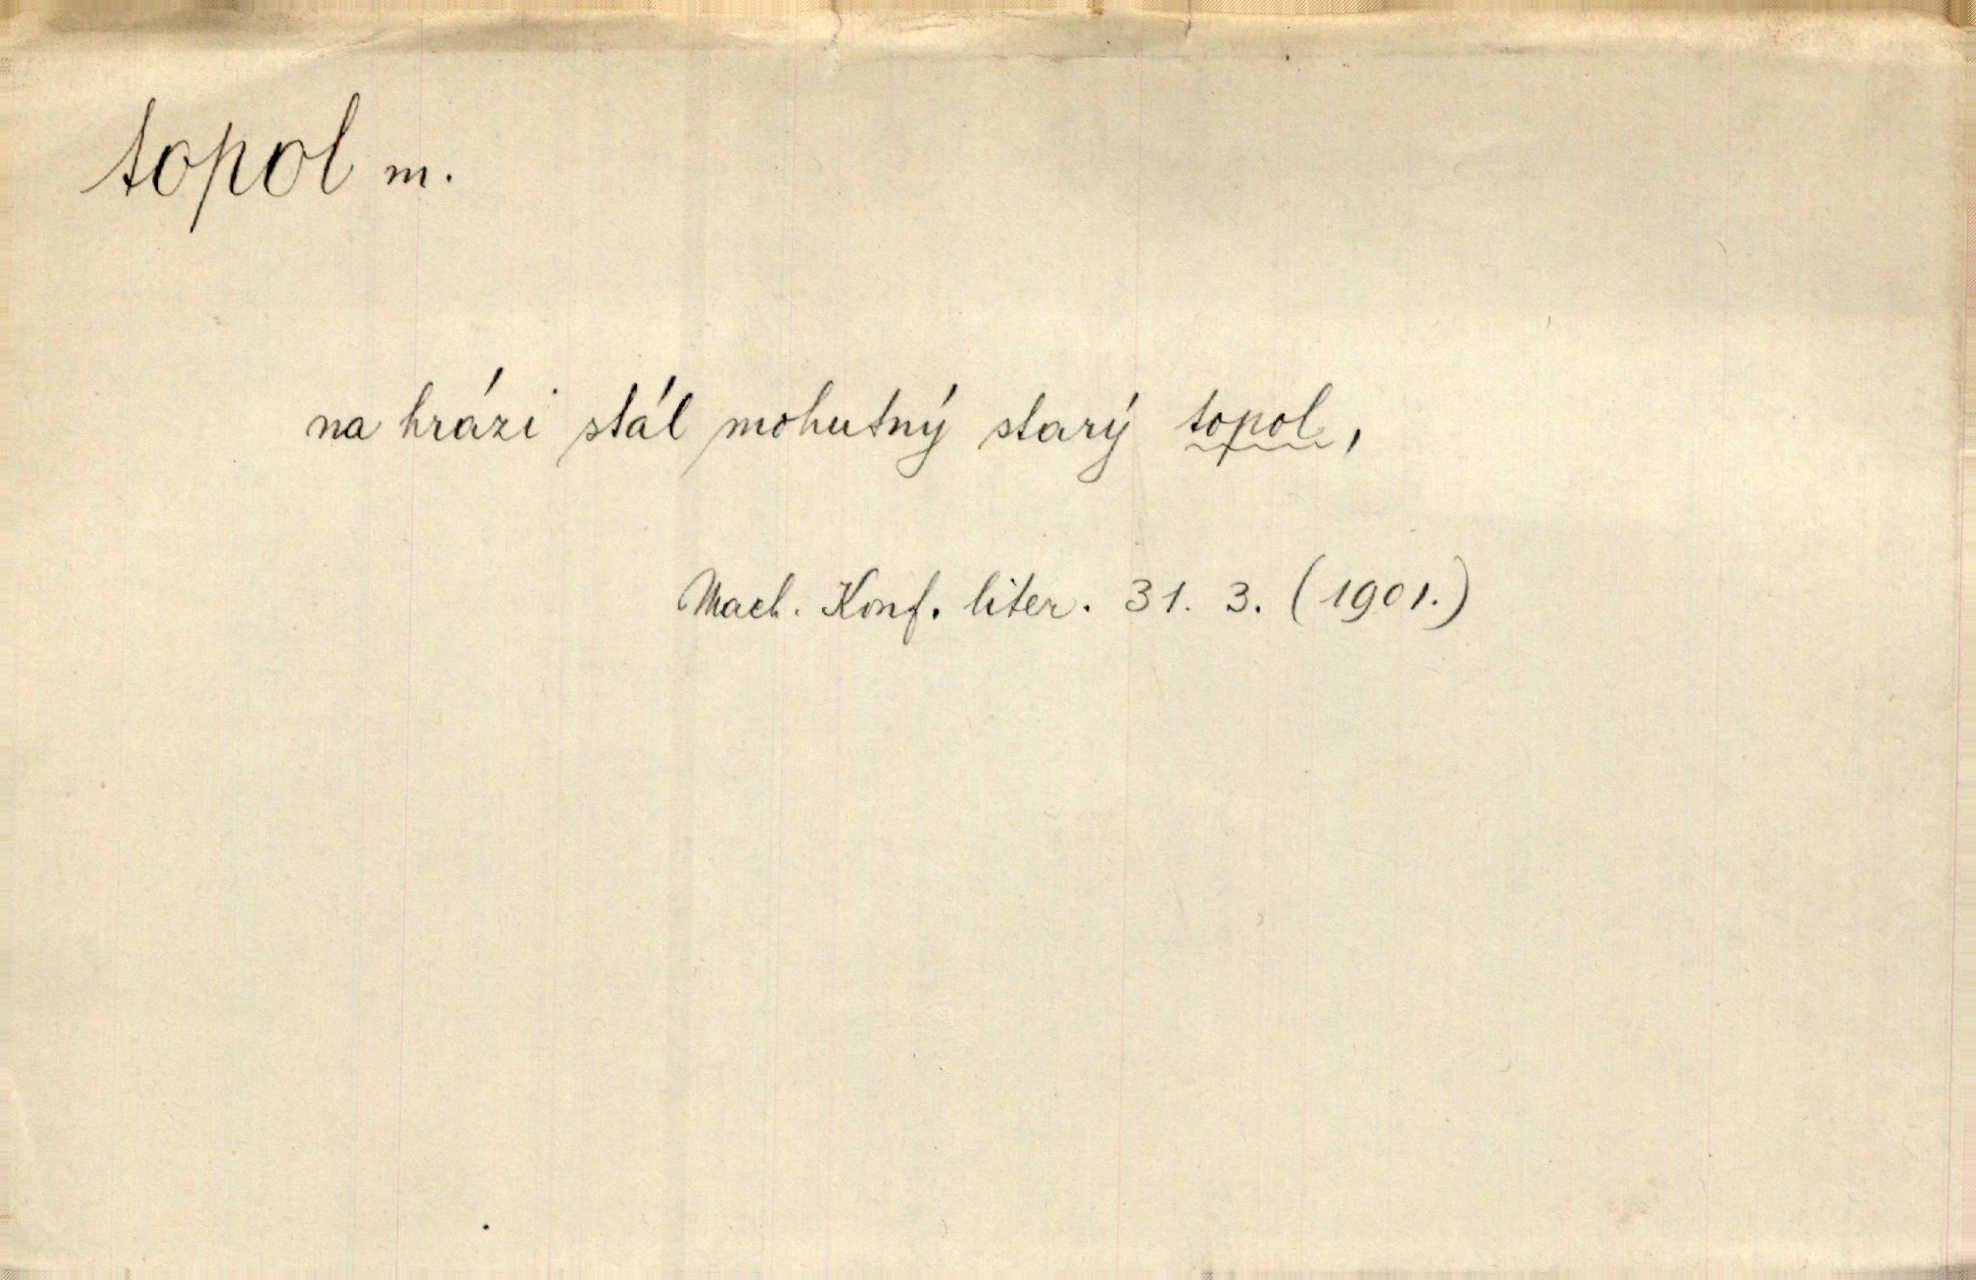 topol m.
na hrázi stál mohutný starý topol,
Mach. Konf. liter. 31. 3. (1901.)